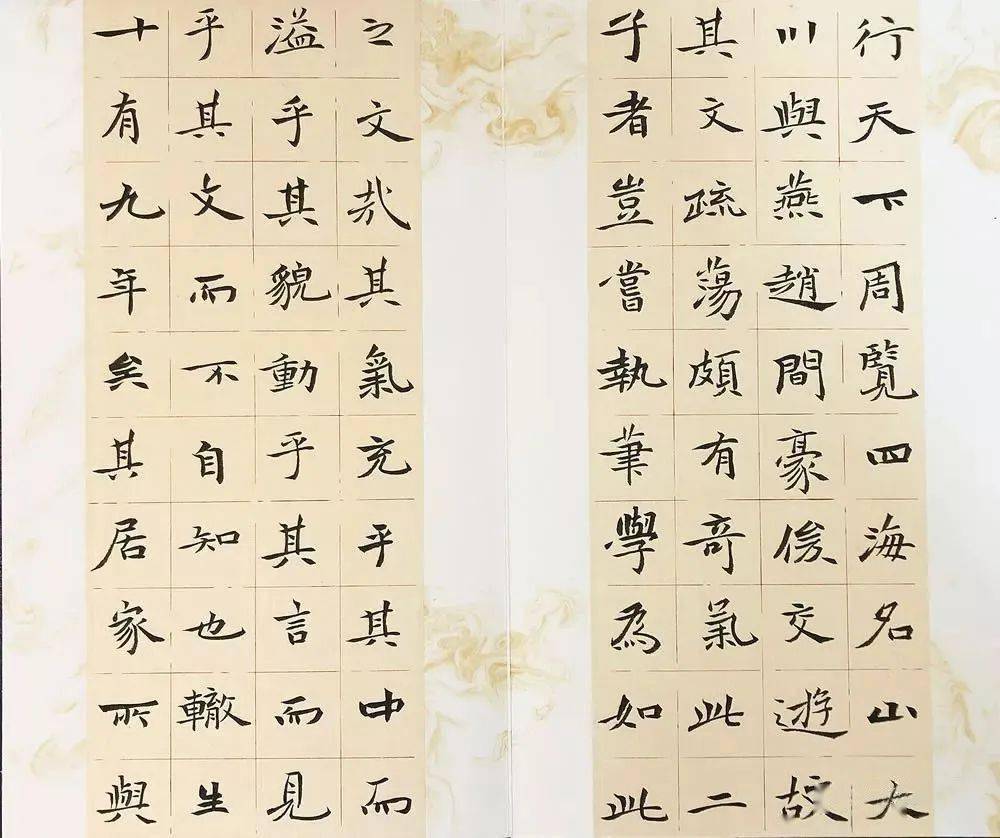 行天下周覽四海名山大
川與燕趙間豪俊交遊故
其文疏蕩頗有奇氣此二
子者豈嘗執筆學為如此
之文哉其氣充乎其中而
溢乎其貌動乎其言而見
乎其文而不自知也轍生
十有九年矣其居家所與